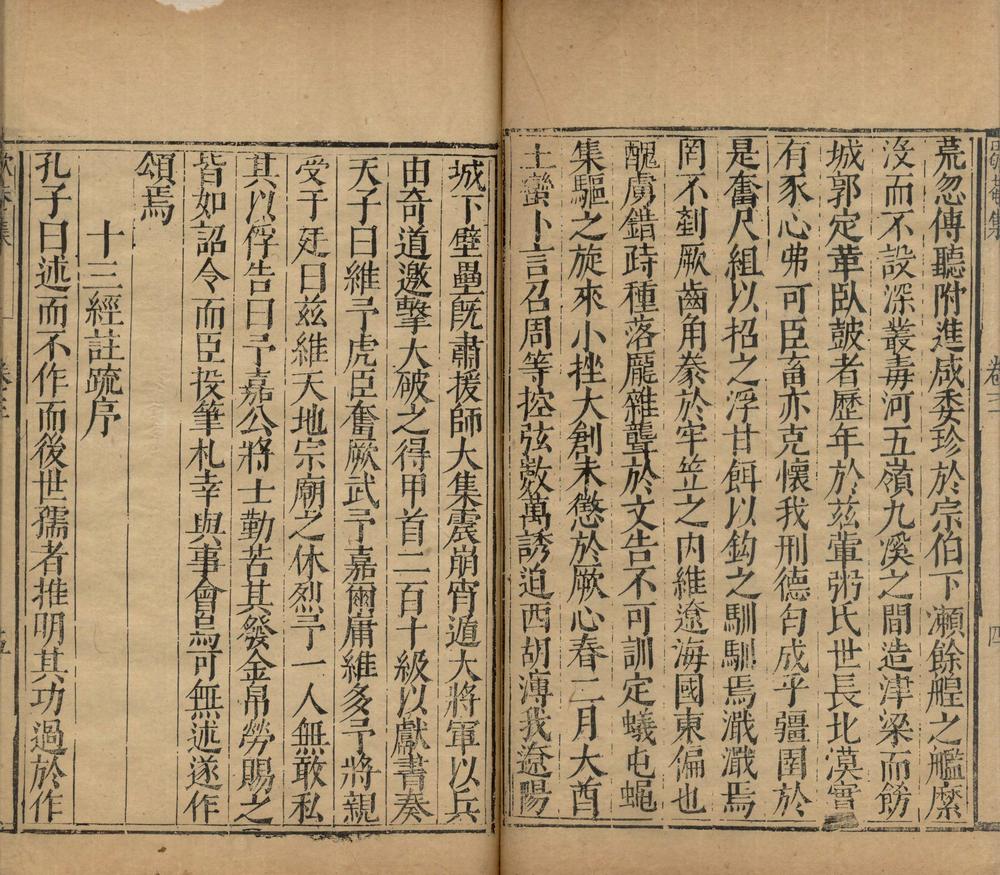 荒忽傳聽附進咸委珍於宗伯下瀨餘艎之艦縻
沒而不設深叢毒河五嶺九溪之間造津梁而餝
城郭定革臥皷者歷年於兹葷粥氏世長北漠實
有豕心弗可臣畜亦克懷我刑德匄成乎疆圉於
是奮尺組以招之浮甘餌以鈎之馴馴焉濈濈焉
罔不劙厥齒角豢於牢笠之内維遼海國東偏也
醜虜錯跱種落龎雜聾於文告不可訓定蟻屯蠅
集驅之旋來小挫大創未懲於厥心春二月大酋
土蠻卜言召周等控弦數萬誘迫西胡溥我遼陽
城下壁壘旣肅援師大集震崩宵遁大將軍以兵
由奇道邀擊大破之得甲首二百十級以獻書奏
天子曰維予虎臣奮厥武予嘉爾庸維多予將親
受于廷曰兹維天地宗廟之休烈予一人無敢私
其以俘告曰予嘉公將士勤苦其發金帛勞賜之
皆如詔令而臣投筆札幸與事會烏可無述遂作
頌焉
十三經註疏序
孔子曰述而不作而後世孺者推明其功過於作